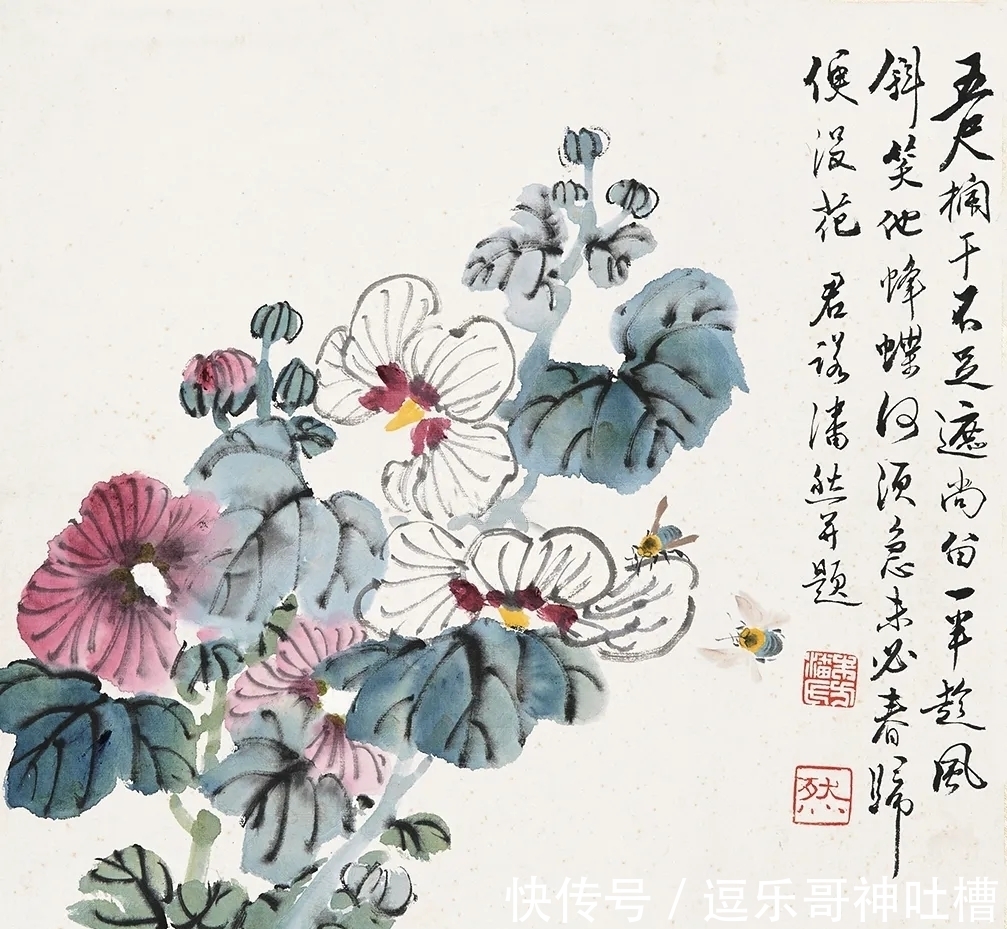 五尺栏干不足遮尚留一半趁风
斜笑他蜂蝶何须急未必春归
便没花 君诺潘然并题
然
快传号 / 逗乐哥神吐槽